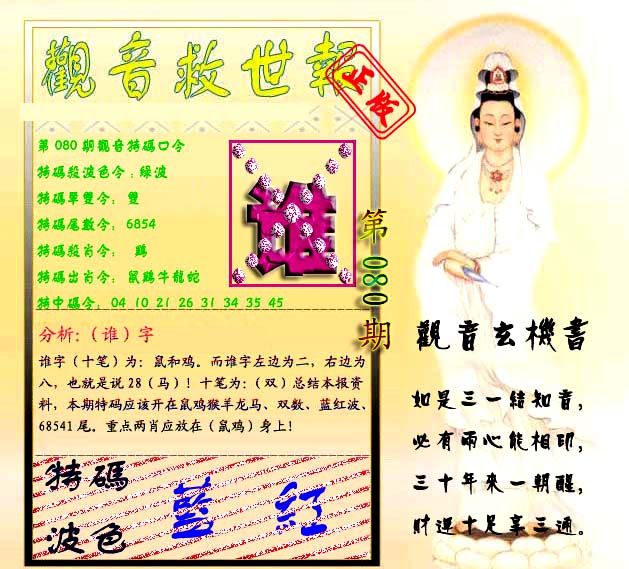 觀音救世報
正传
第080期觀音特碼口令
特碼殺波色令：綠波
特碼單雙令： 雙
特碼尾數令： 6854
特碼殺肖令： 鷄
特碼出肖令： 鼠鷄牛龍蛇
特中碼令： 04 10 21 26 31 34 35 45
谁
第080期
分析：（谁）字
谁字（十笔）为：鼠和鸡。而谁字左边为二，右边为
八，也就是说28（马）！十笔为：（双）总结本报资
料，本期特码应该开在鼠鸡猴羊龙马、双数、蓝红波、
68541尾。重点两肖应放在（鼠鸡）身上！
特碼
波色
藍 紅
觀音玄機書
如是三一結知音，
必有兩心能相印，
三十年來一朝醒，
財運十足享三通。